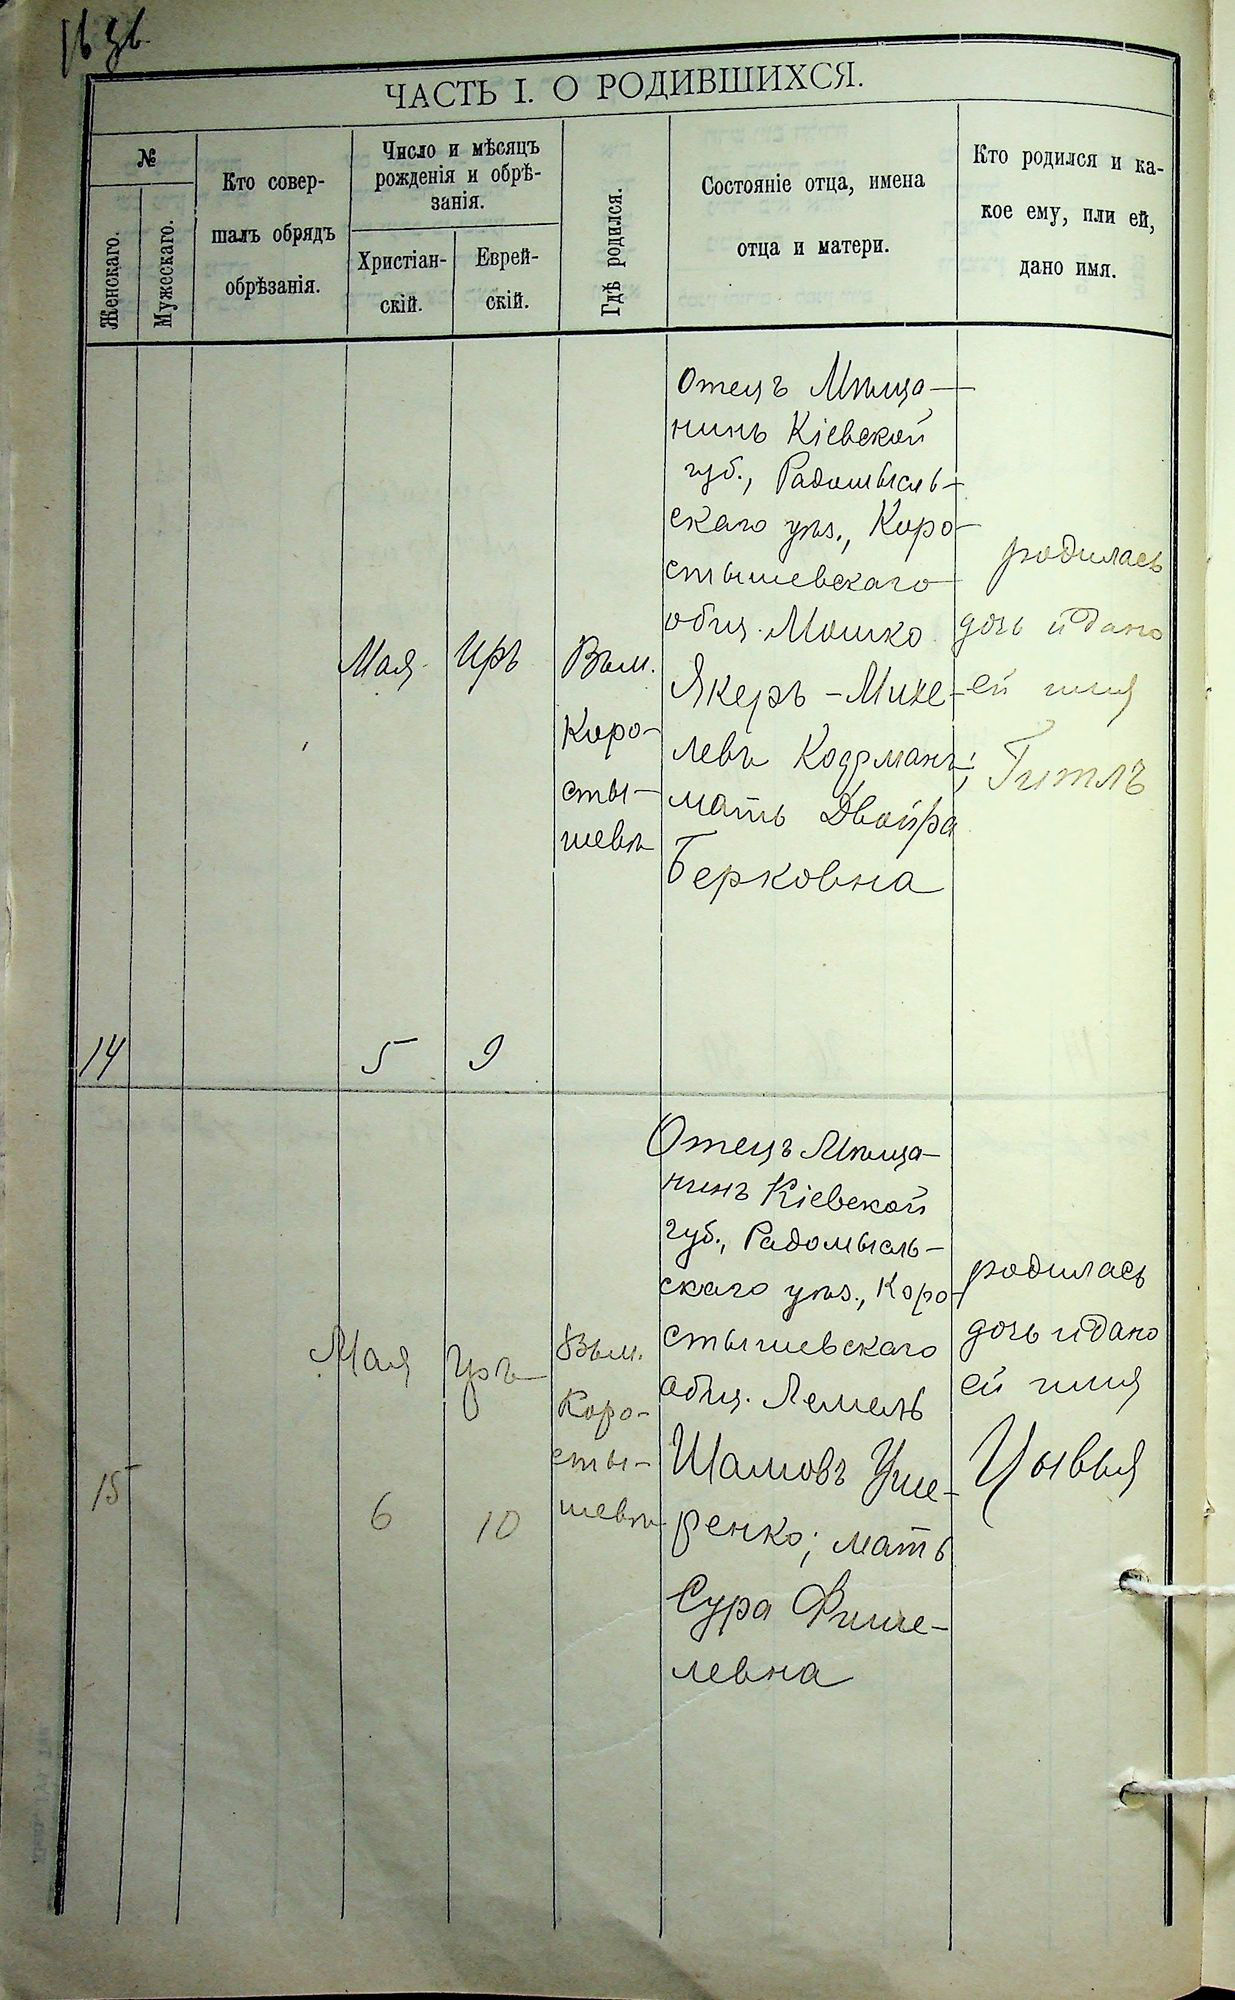 ЧАСТЬ I. О РОДИВШИХСЯ.
№
Женскаго.
Мужескаго.
Кто совер-
шалъ обрядъ
обрѣзанія.
Число и мѣсяцъ
рожденія и обрѣ-
занія.
Христіан-
скій.
Еврей-
скій.
Гдѣ родился.
Состояніе отца, имена
отца и матери.
Кто родился и ка-
кое ему, или ей,
дано имя.
14
Мая
5
Иръ
9
Въ м.
Коро-
сты-
шевѣ
Отецъ Мѣща-
нинъ Кіевской
губ., Радомысль-
скаго уѣз., Коро-
стышевскаго
общ. Мошко
Якеръ-Михе-
левъ Кодрманъ;
мать Двойра
Берковна
родилась
дочь и дано
ей имя
Гитлъ
15
Мая
6
Иръ
10
Въ м.
Коро-
сты-
шевѣ
Отецъ Мѣща-
нинъ Кіевской
губ., Радомысль-
скаго уѣз., Коро-
стышевскаго
общ. Лемель
Шамовъ Уше-
ренко; мать
Сура Фише-
левна
родилась
дочь и дано
ей имя
Цывья